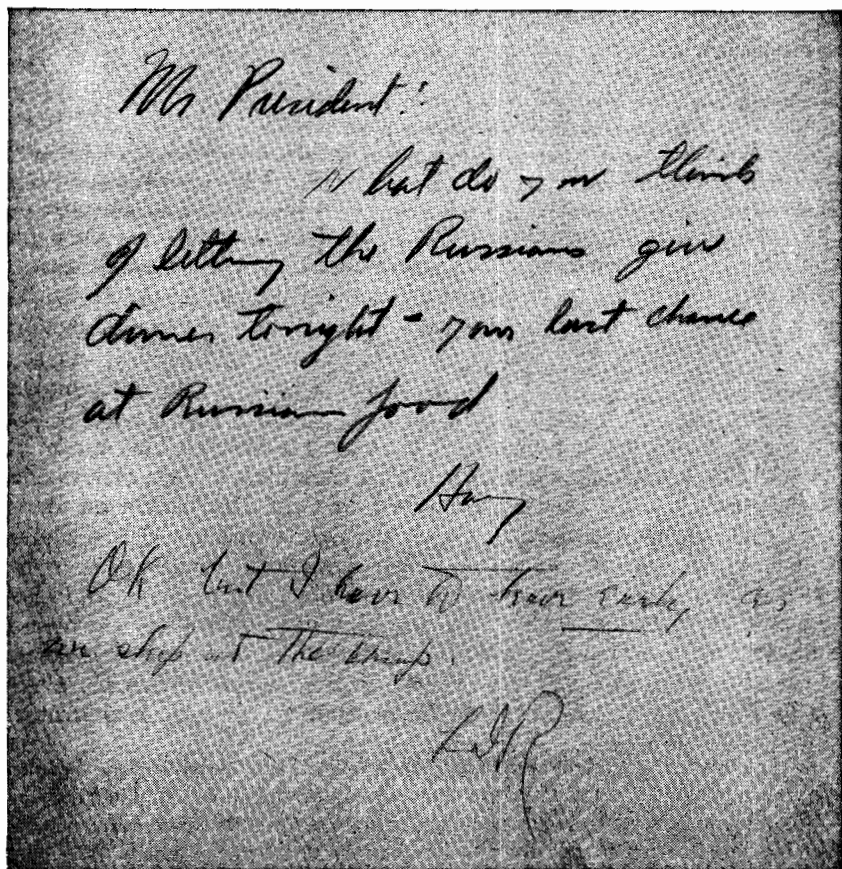 Mr President:
What do you think
of letting the Russians give
dinner tonight - your last chance
at Russian food
Harry
OK but I have to leave early, as
we the
FDR